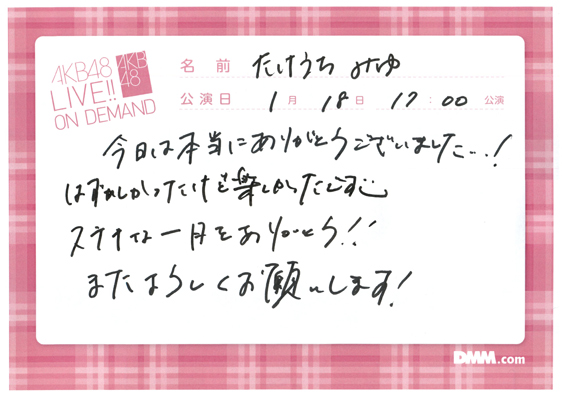 AKB48
LIVE!!
ON DEMAND
AKB
48
名前 たけうち みゆ
公演日 1月 18日 17:00 公演
今日は本当にありがとうございました…!
はずかしかったけど楽しかったです
ステキな一日をありがとう!!
またよろしくお願いします!
DMM.com